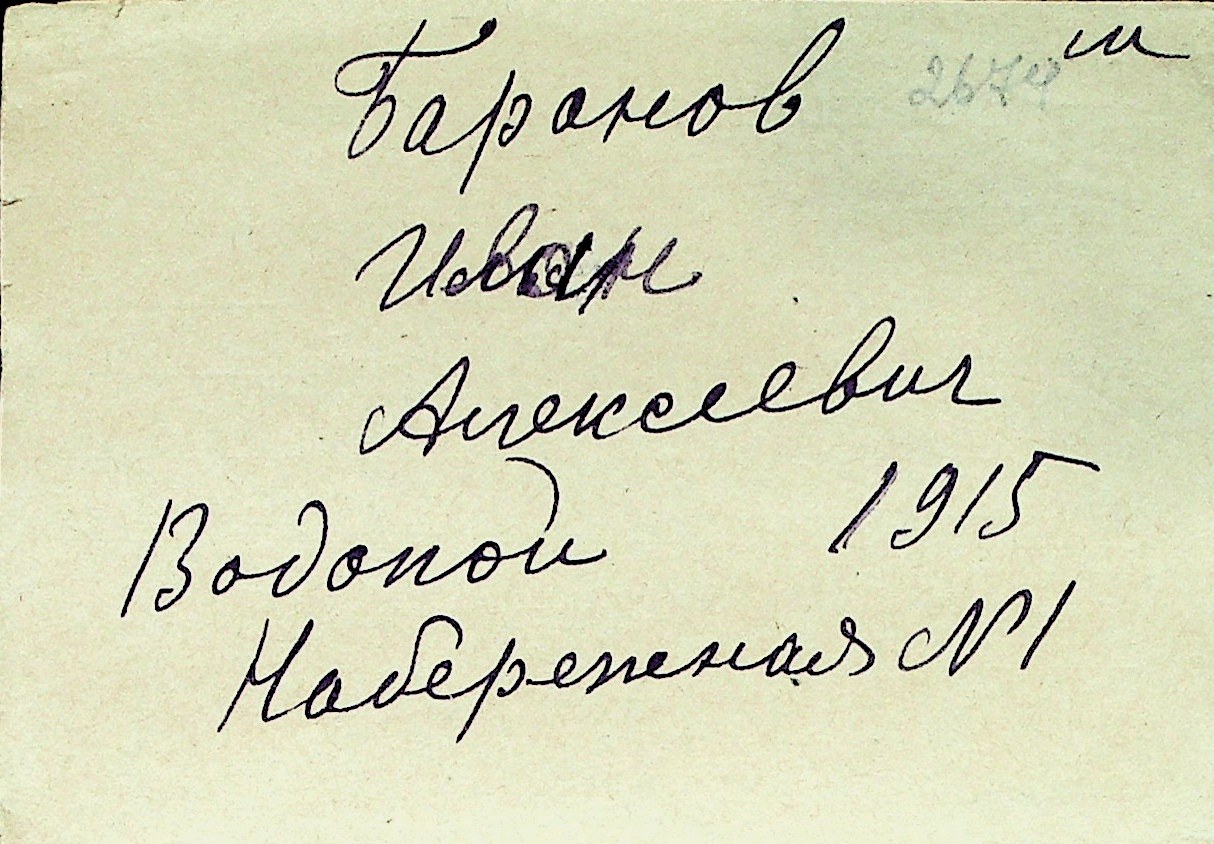 Баранов м
Иван
Алексеевич
Водопой 1915
Набережная №1